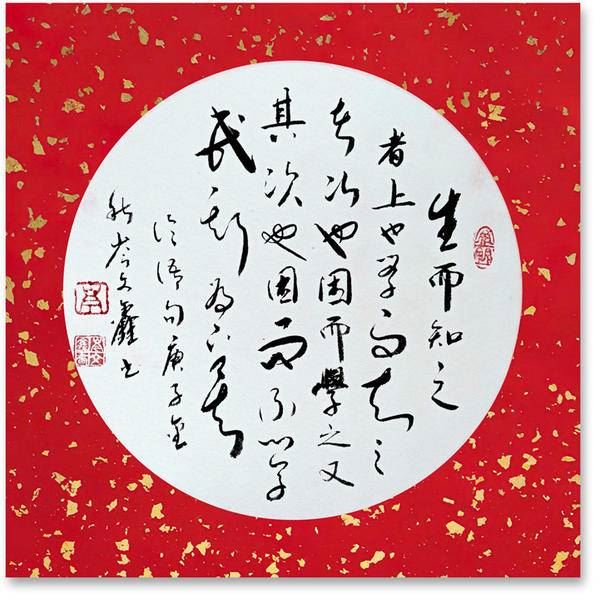 生而知之
者上也学而知之
者次也困而學之又
其次也困而不学
民斯为下矣
论语句庚子金
秋岑文鑫书